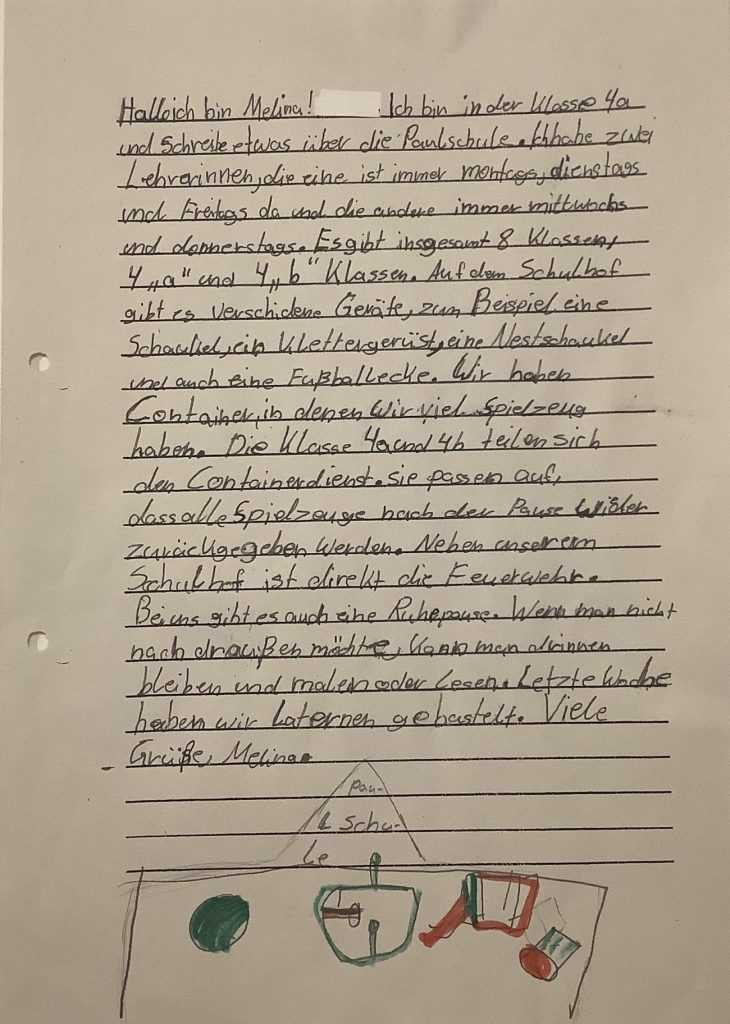 Hallo ich bin Melina! Ich bin in der Klasse 4a
und schreibe etwas über die Paulschule. Ich habe zwei
Lehrerinnen, die eine ist immer montags, dienstags
und Freitags da und die andere immer mittwochs
und donnerstags. Es gibt insgesamt 8 Klassen,
4 „a" und 4 „b" Klassen. Auf dem Schulhof
gibt es verschidene Geräte, zum Beispiel eine
Schaukel, ein Klettergerüst, eine Nestschaukel
und auch eine Fußballecke. Wir haben
Container, in denen wir viel Spielzeug
haben. Die Klasse 4a und 4b teilen sich
den Containerdienst. sie passen auf,
dass alle Spielzeuge nach der Pause wieder
zurückgegeben werden. Neben unserem
Schulhof ist direkt die Feuerwehr.
Bei uns gibt es auch eine Ruhepause. Wenn man nicht
nach draußen möchte, kann man drinnen
bleiben und malen oder lesen. Letzte Woche
haben wir Laternen gebastelt. Viele
Grüße, Melina.
Pau-
l Schu-
le